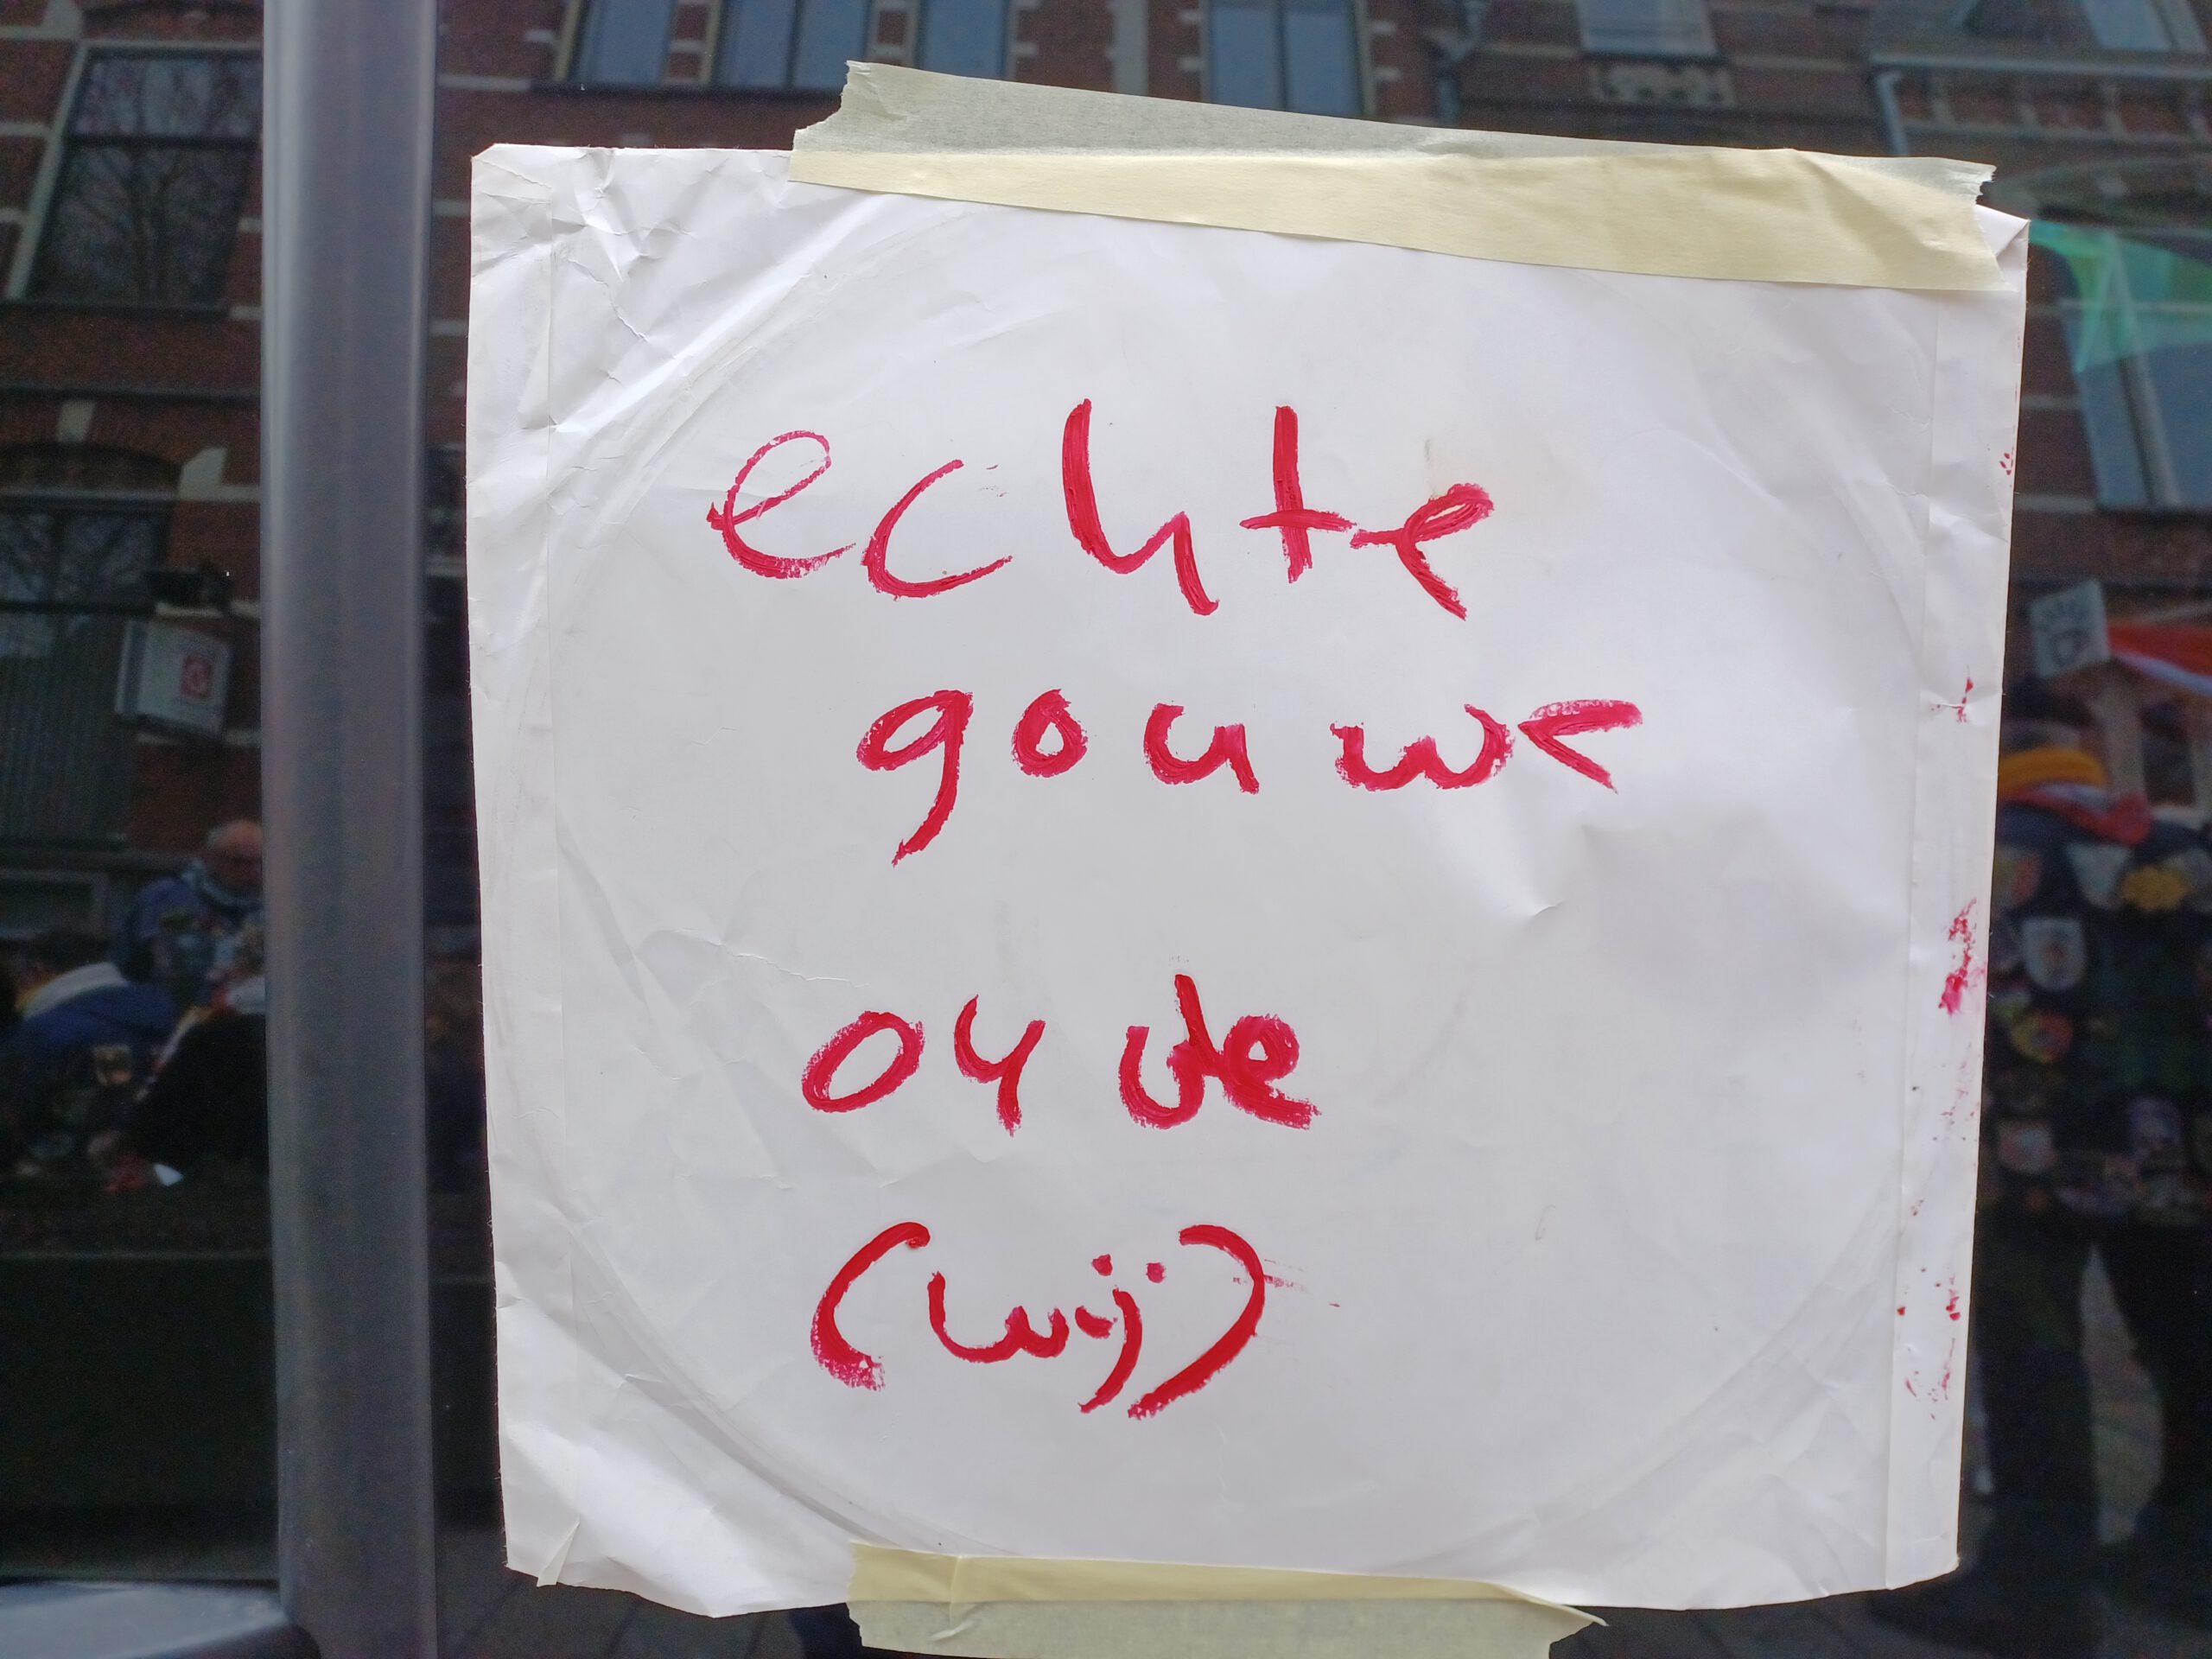 echte
gouwe
oude
(wij)